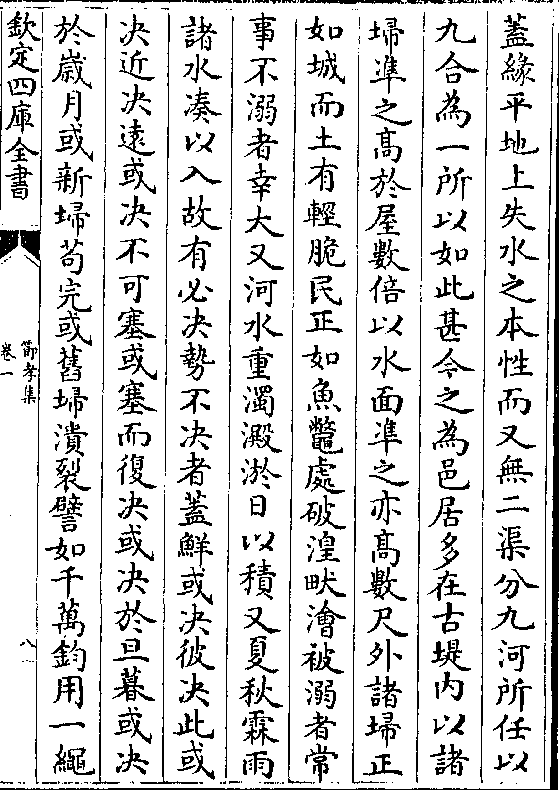 蓋緣平地上失水之本性而又無二渠分九河所任以
九合為一所以如此甚今之為邑居多在古堤内以諸
埽準之髙於屋數倍以水面準之亦髙數尺外諸埽正
如城而土有輕脆民正如魚鼈處破湟畎澮被溺者常
事不溺者幸大又河水重濁澱淤日以積又夏秋霖雨
諸水湊以入故有必决勢不决者蓋鮮或决彼决此或
决近决逺或决不可塞或塞而復决或决於旦暮或决
於嵗月或新埽茍完或舊埽潰裂譬如千萬鈞用一繩
欽定四庫全書
節孝集
卷一
八